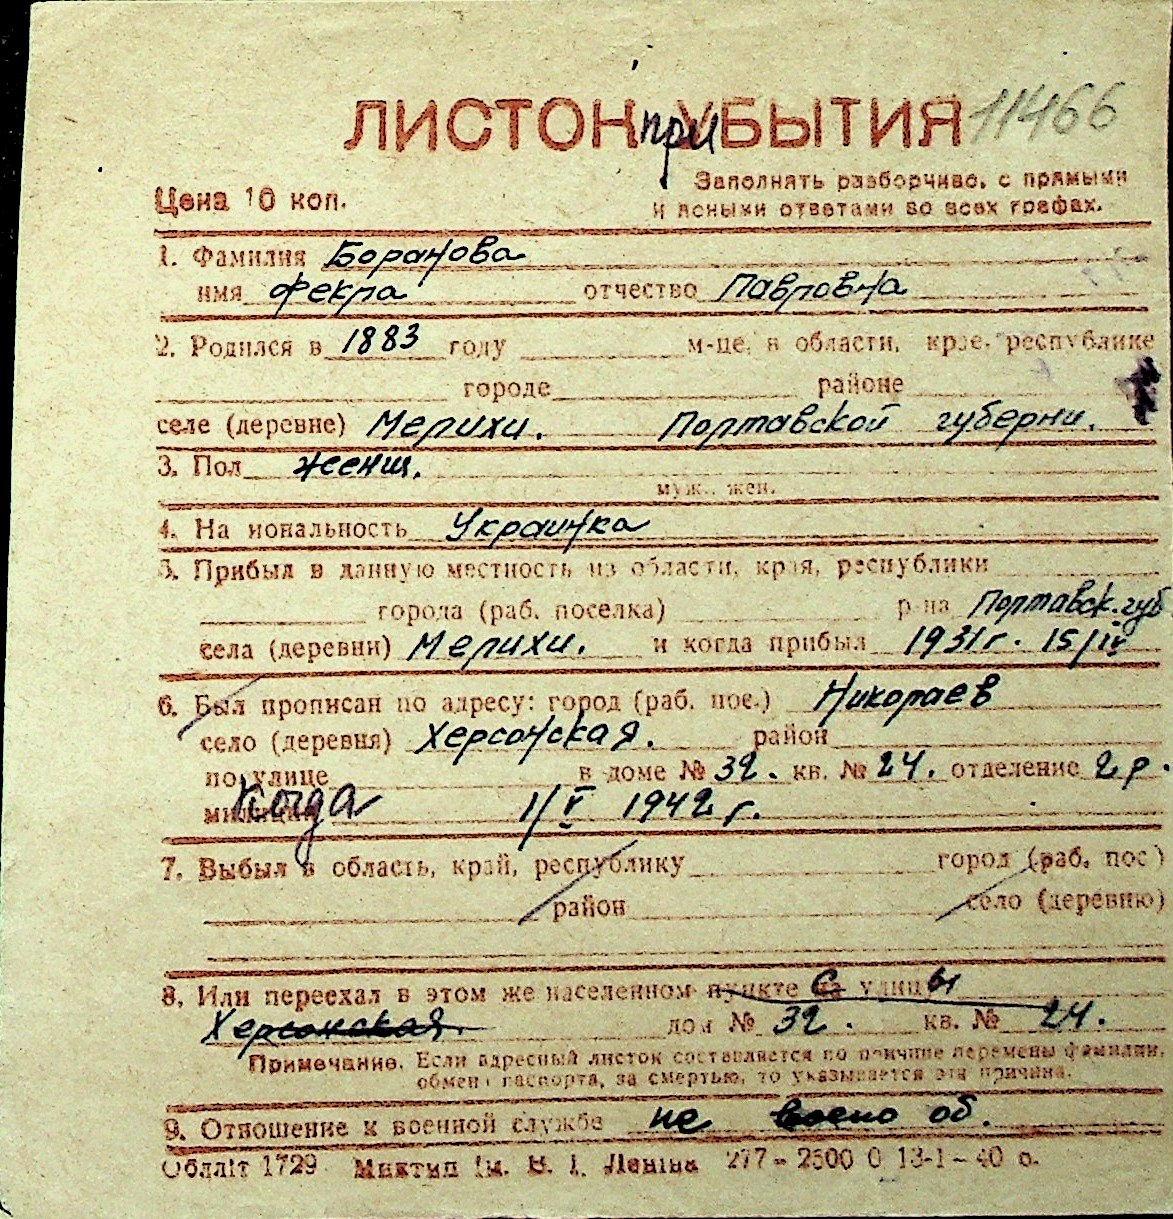 ЛИСТОКприУБЫТИЯ 11466
Цена 10 коп.
Заполнять разборчиво, с прямыми
и ясными ответами во всех графах.
1. Фамилия Боранова
имя Фекла отчество Павловна
2. Родился в 1883 году м-це, в области, крае, республике
городе районе
селе (деревне) Мелихи. Полтавской губерни.
3. Пол женщ.
муж., жен.
4. На иональность Украинка
5. Прибыл в данную местность из области, края, республики
города (раб. поселка) р-на Полтавск. губ
села (деревни) Мелихи. и когда прибыл 1931 г. 15/IV
6. Был прописан по адресу: город (раб. пос.) Николаев
село (деревня) Херсонская. район
по улице в доме № 32. кв. № 24. отделение 2 р.
милиции Когда 1/V 1942 г.
7. Выбыл в область, край, республику город (раб. пос)
район село (деревню)
8. Или переехал в этом же населенном пункте с на улицы
Херсонская. дом № 32. кв. № 24.
Примечание. Если адресный листок составляется по причине перемены фамилии,
обмена паспорта, за смертью, то указывается эта причина.
9. Отношение к военной службе не воено об.
Обліт 1729 Миктип ім. В. І. Леніна 277–2500 0 13-1–40 о.